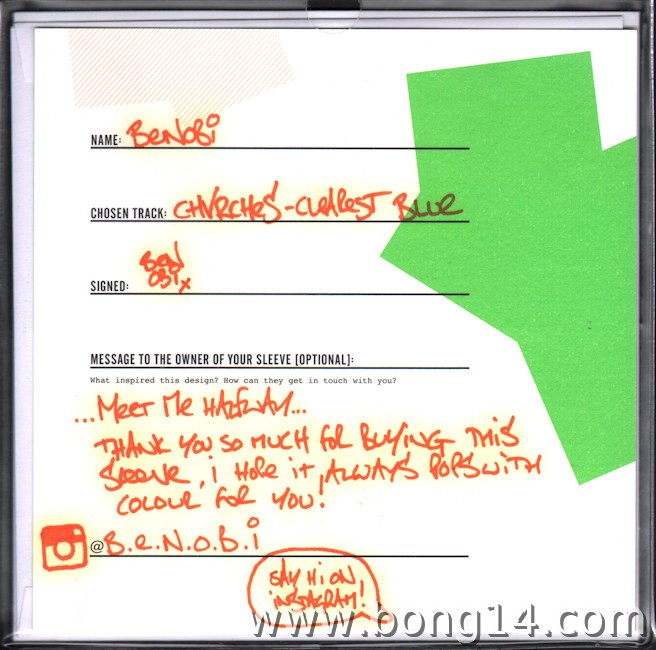 NAME: BeNOBi
CHOSEN TRACK: CHVRCHES - CLEAREST BLUE
SIGNED: BeN
OBi x
MESSAGE TO THE OWNER OF YOUR SLEEVE [OPTIONAL]:
What inspired this design? How can they get in touch with you?
...MEET ME HALFWAY...
THANK YOU SO MUCH FOR BUYING THIS
SLEEVE, i HOPE iT ALWAYS POPS WITH
COLOUR FOR YOU!
@B.e.N.o.b.i
SAY Hi ON
iNSTAGRAM!
www.bong14.com